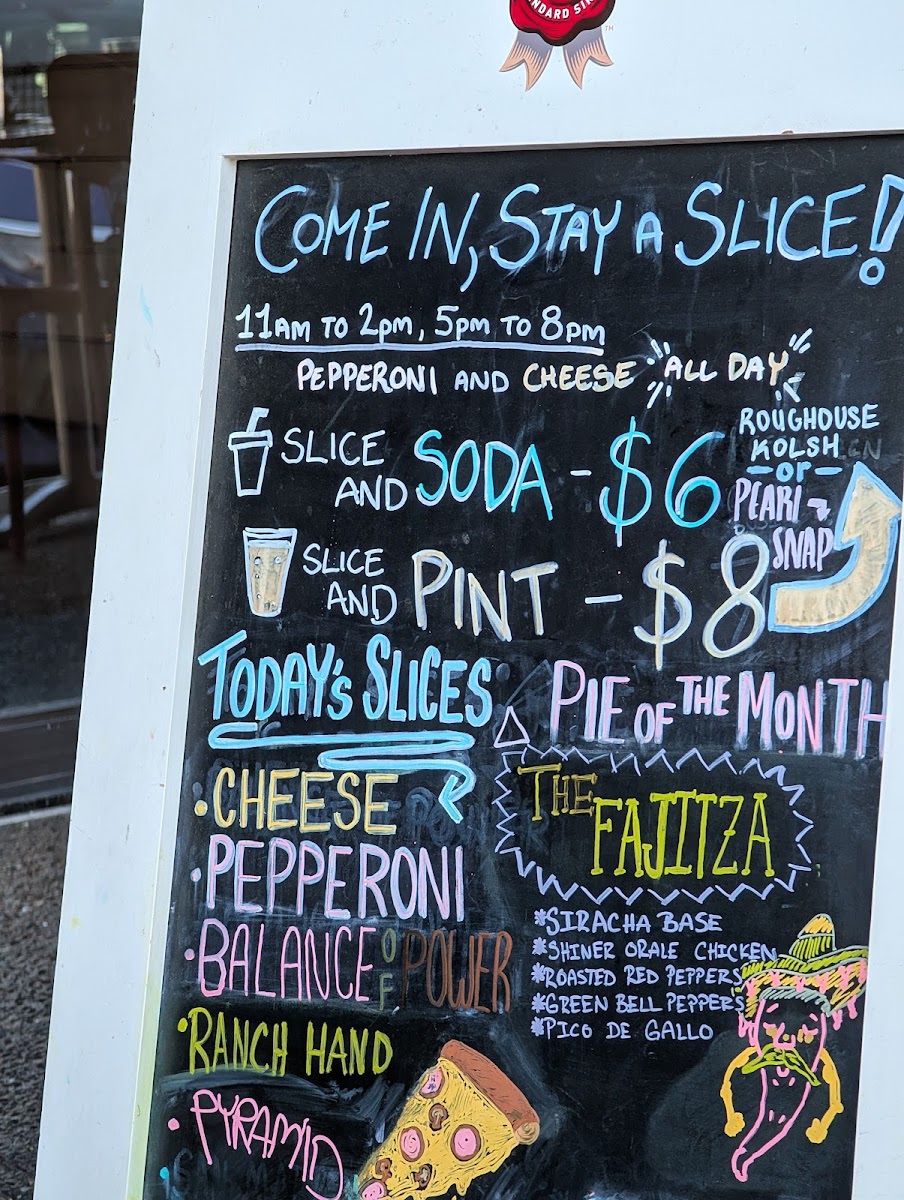 NDARD SIN
TM
COME IN, STAY A SLICE!
11AM TO 2PM, 5PM TO 8PM
PEPPERONI AND CHEESE ALL DAY
SLICE AND SODA - $6
SLICE AND PINT - $8
ROUGHOUSE
KOLSH
-or-
PEARL
SNAP
TODAY'S SLICES
• CHEESE
• PEPPERONI
• BALANCE OF POWER
• RANCH HAND
• PYRAMID
PIE OF THE MONTH
THE
FAJITZA
*SIRACHA BASE
*SHINER ORALE CHICKEN
*ROASTED RED PEPPERS
*GREEN BELL PEPPERS
*PICO DE GALLO